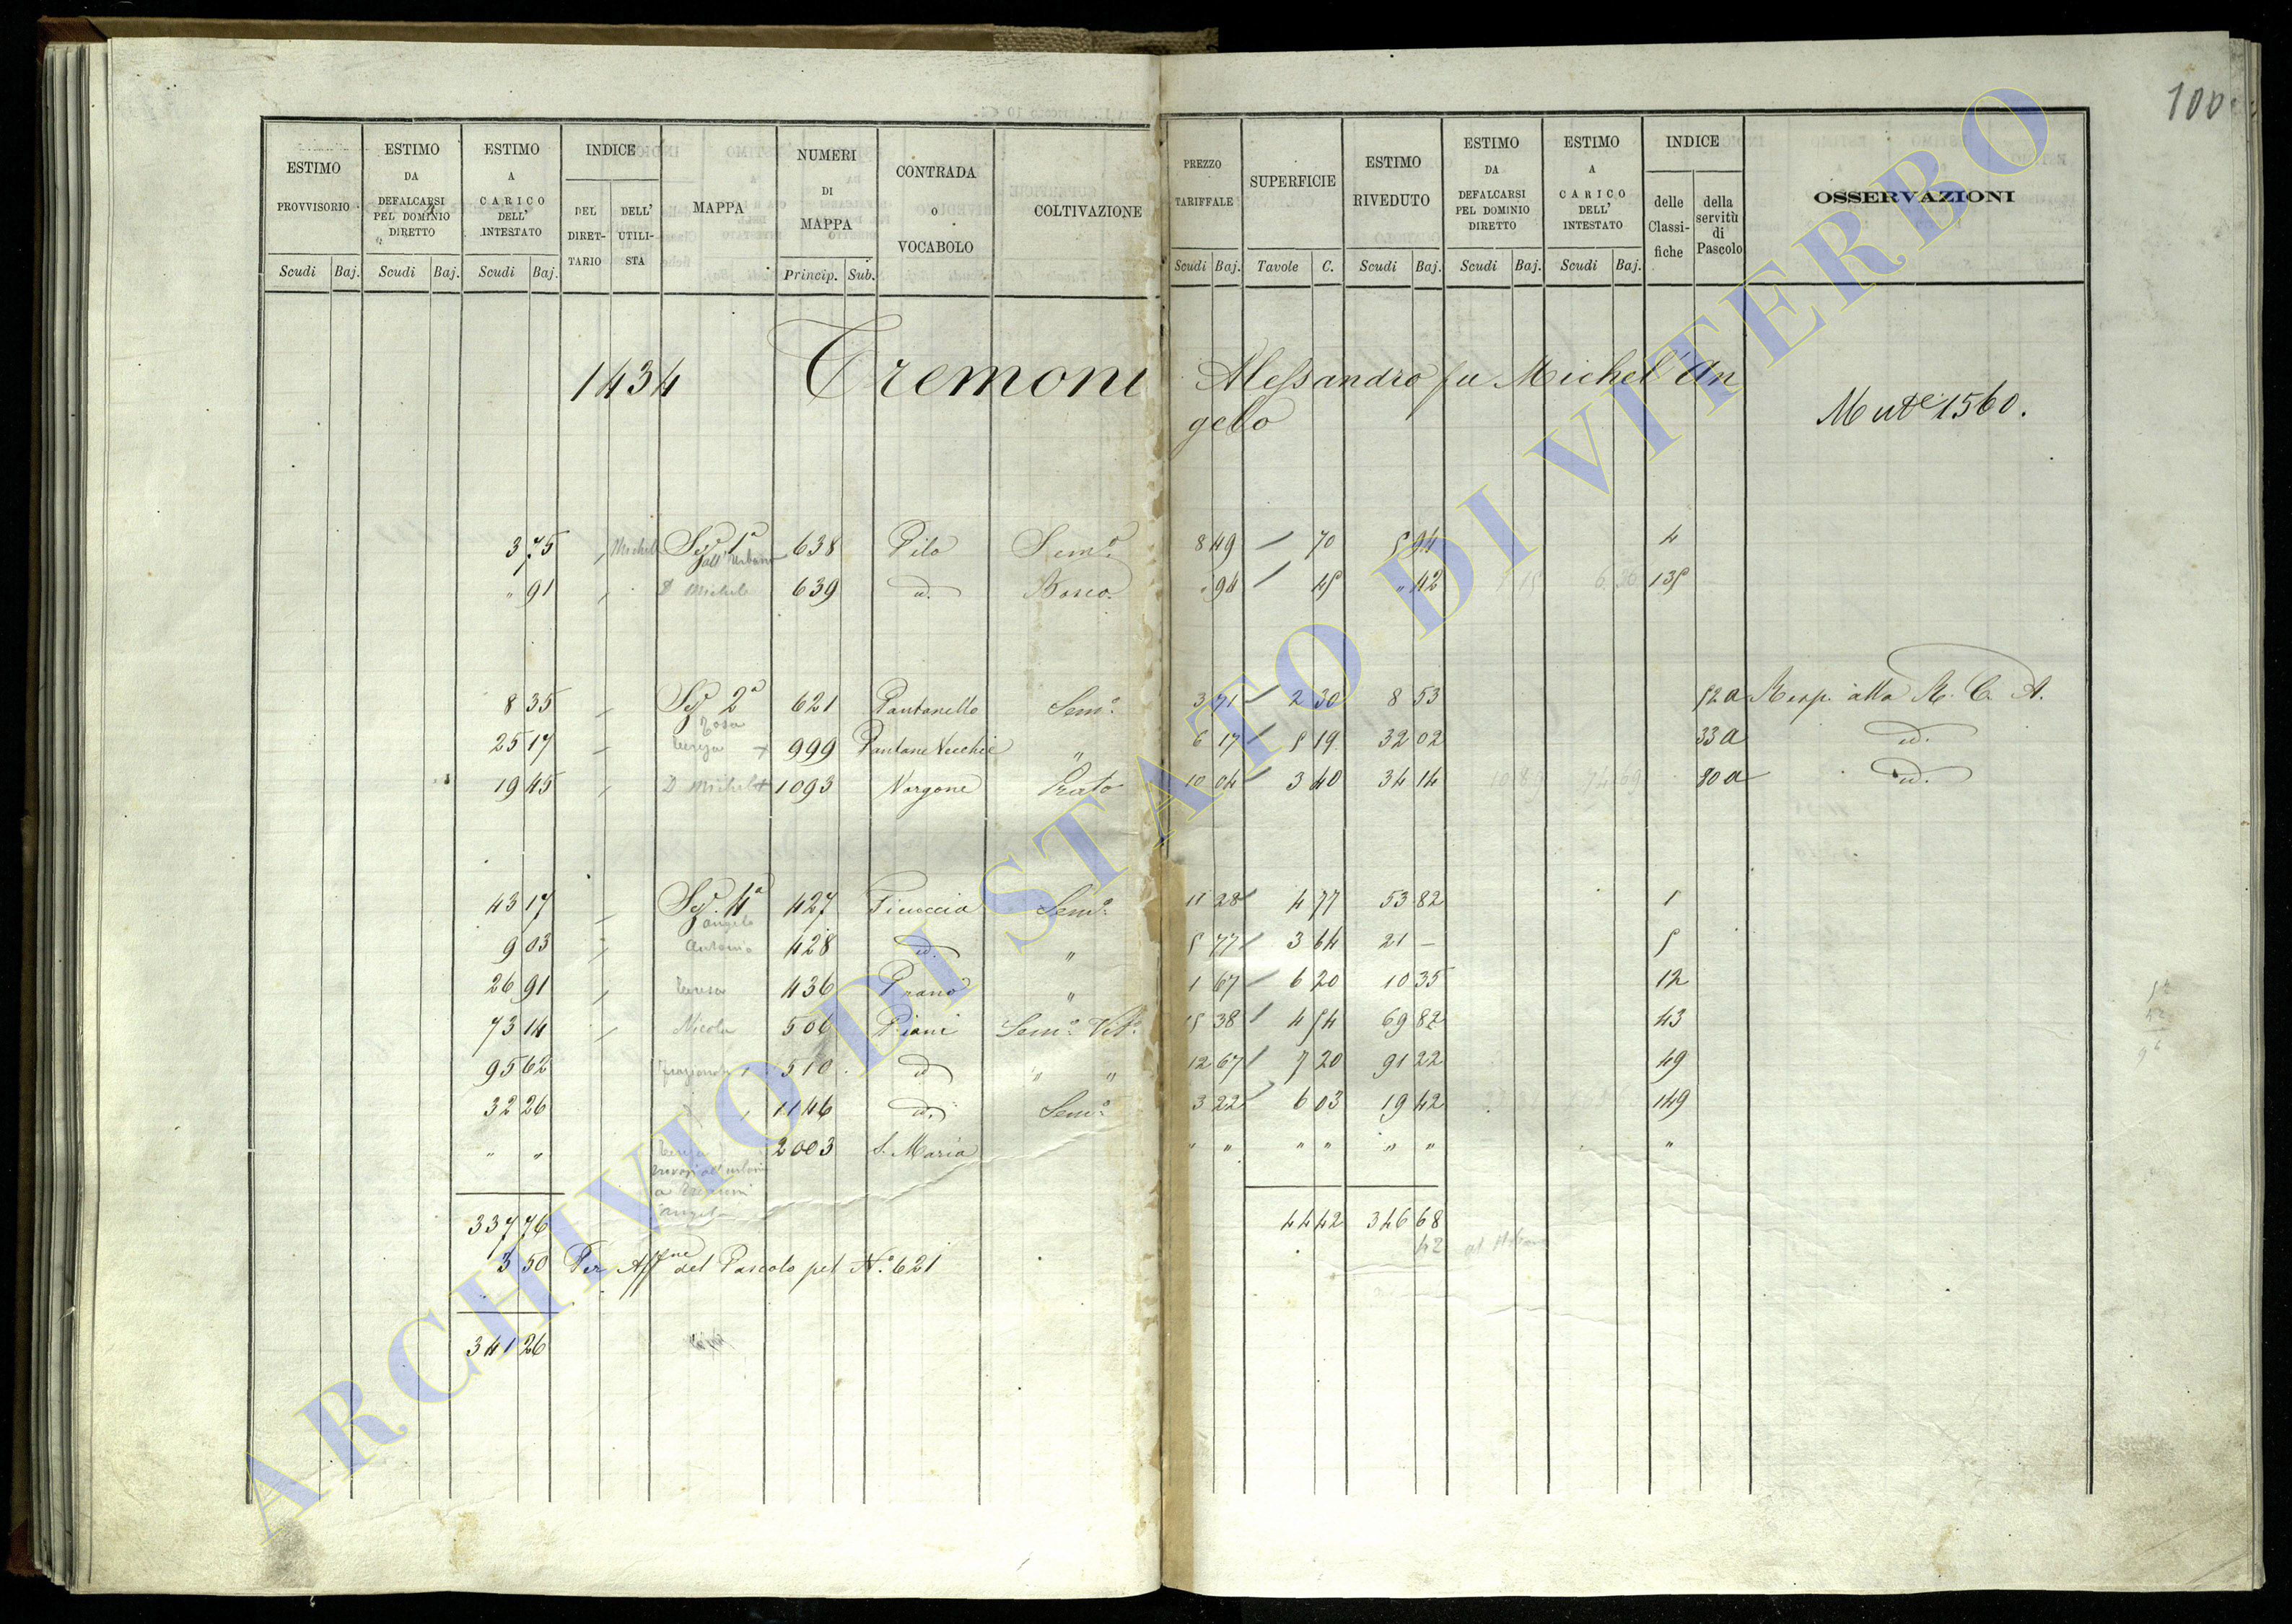 100
ESTIMO PROVVISORIO
ESTIMO DA DEFALCARSI PEL DOMINIO DIRETTO
ESTIMO A CARICO DELL' INTESTATO
INDICE
DEL DIRETTARIO
DELL' UTILISTA
MAPPA
NUMERI DI MAPPA
CONTRADA O VOCABOLO
COLTIVAZIONE
PREZZO TARIFFALE
SUPERFICIE
ESTIMO RIVEDUTO
ESTIMO DA DEFALCARSI PEL DOMINIO DIRETTO
ESTIMO A CARICO DELL' INTESTATO
INDICE
delle Classifiche
della servitù di Pascolo
OSSERVAZIONI
Scudi Baj. Scudi Baj. Scudi Baj. Princip. Sub. Scudi Baj. Tavole C. Scudi Baj. Scudi Baj. Scudi Baj.
1434 Cremoni Alessandro fu Michel'An
gelo
Mut.e 1560.
3 75 Michele Sez. 1a 638 Pilo Sem.o 8 49 70 5 94 4
all'Urbano
" 91 D Michele 639 id. Bosco " 94 45 " 42 135
8 35 Sez. 2a 621 Pantanello Sem.o 3 71 2 30 8 53 52a Risp. alla R. C. A.
Rosa
25 17 Teresa 999 Pantane Vecchie " 6 17 5 19 32 02 33a id.
19 45 D Michele 1093 Vorgone Prato 10 04 3 40 34 14 80a id.
43 17 Sez. 4a 427 Ficoccia Sem.o 11 28 4 77 53 82 1
Angelo
9 03 Antonio 428 id. " 5 77 3 64 21 — 5
26 91 Teresa 436 " 1 67 6 20 10 35 12
73 14 Nicola 506 Piani Sem.o Vit.o 15 38 4 54 69 82 43
95 62 510 id " " 12 67 7 20 91 22 49
32 26 1146 id. Sem.o 3 22 6 03 19 42 149
" " 2003 S. Maria " " " " " " "
337 76 44 42 346 68
42
3 50 Per Aff.ne del Pascolo pel N.o 621
341 26
ARCHIVIO DI STATO DI VITERBO